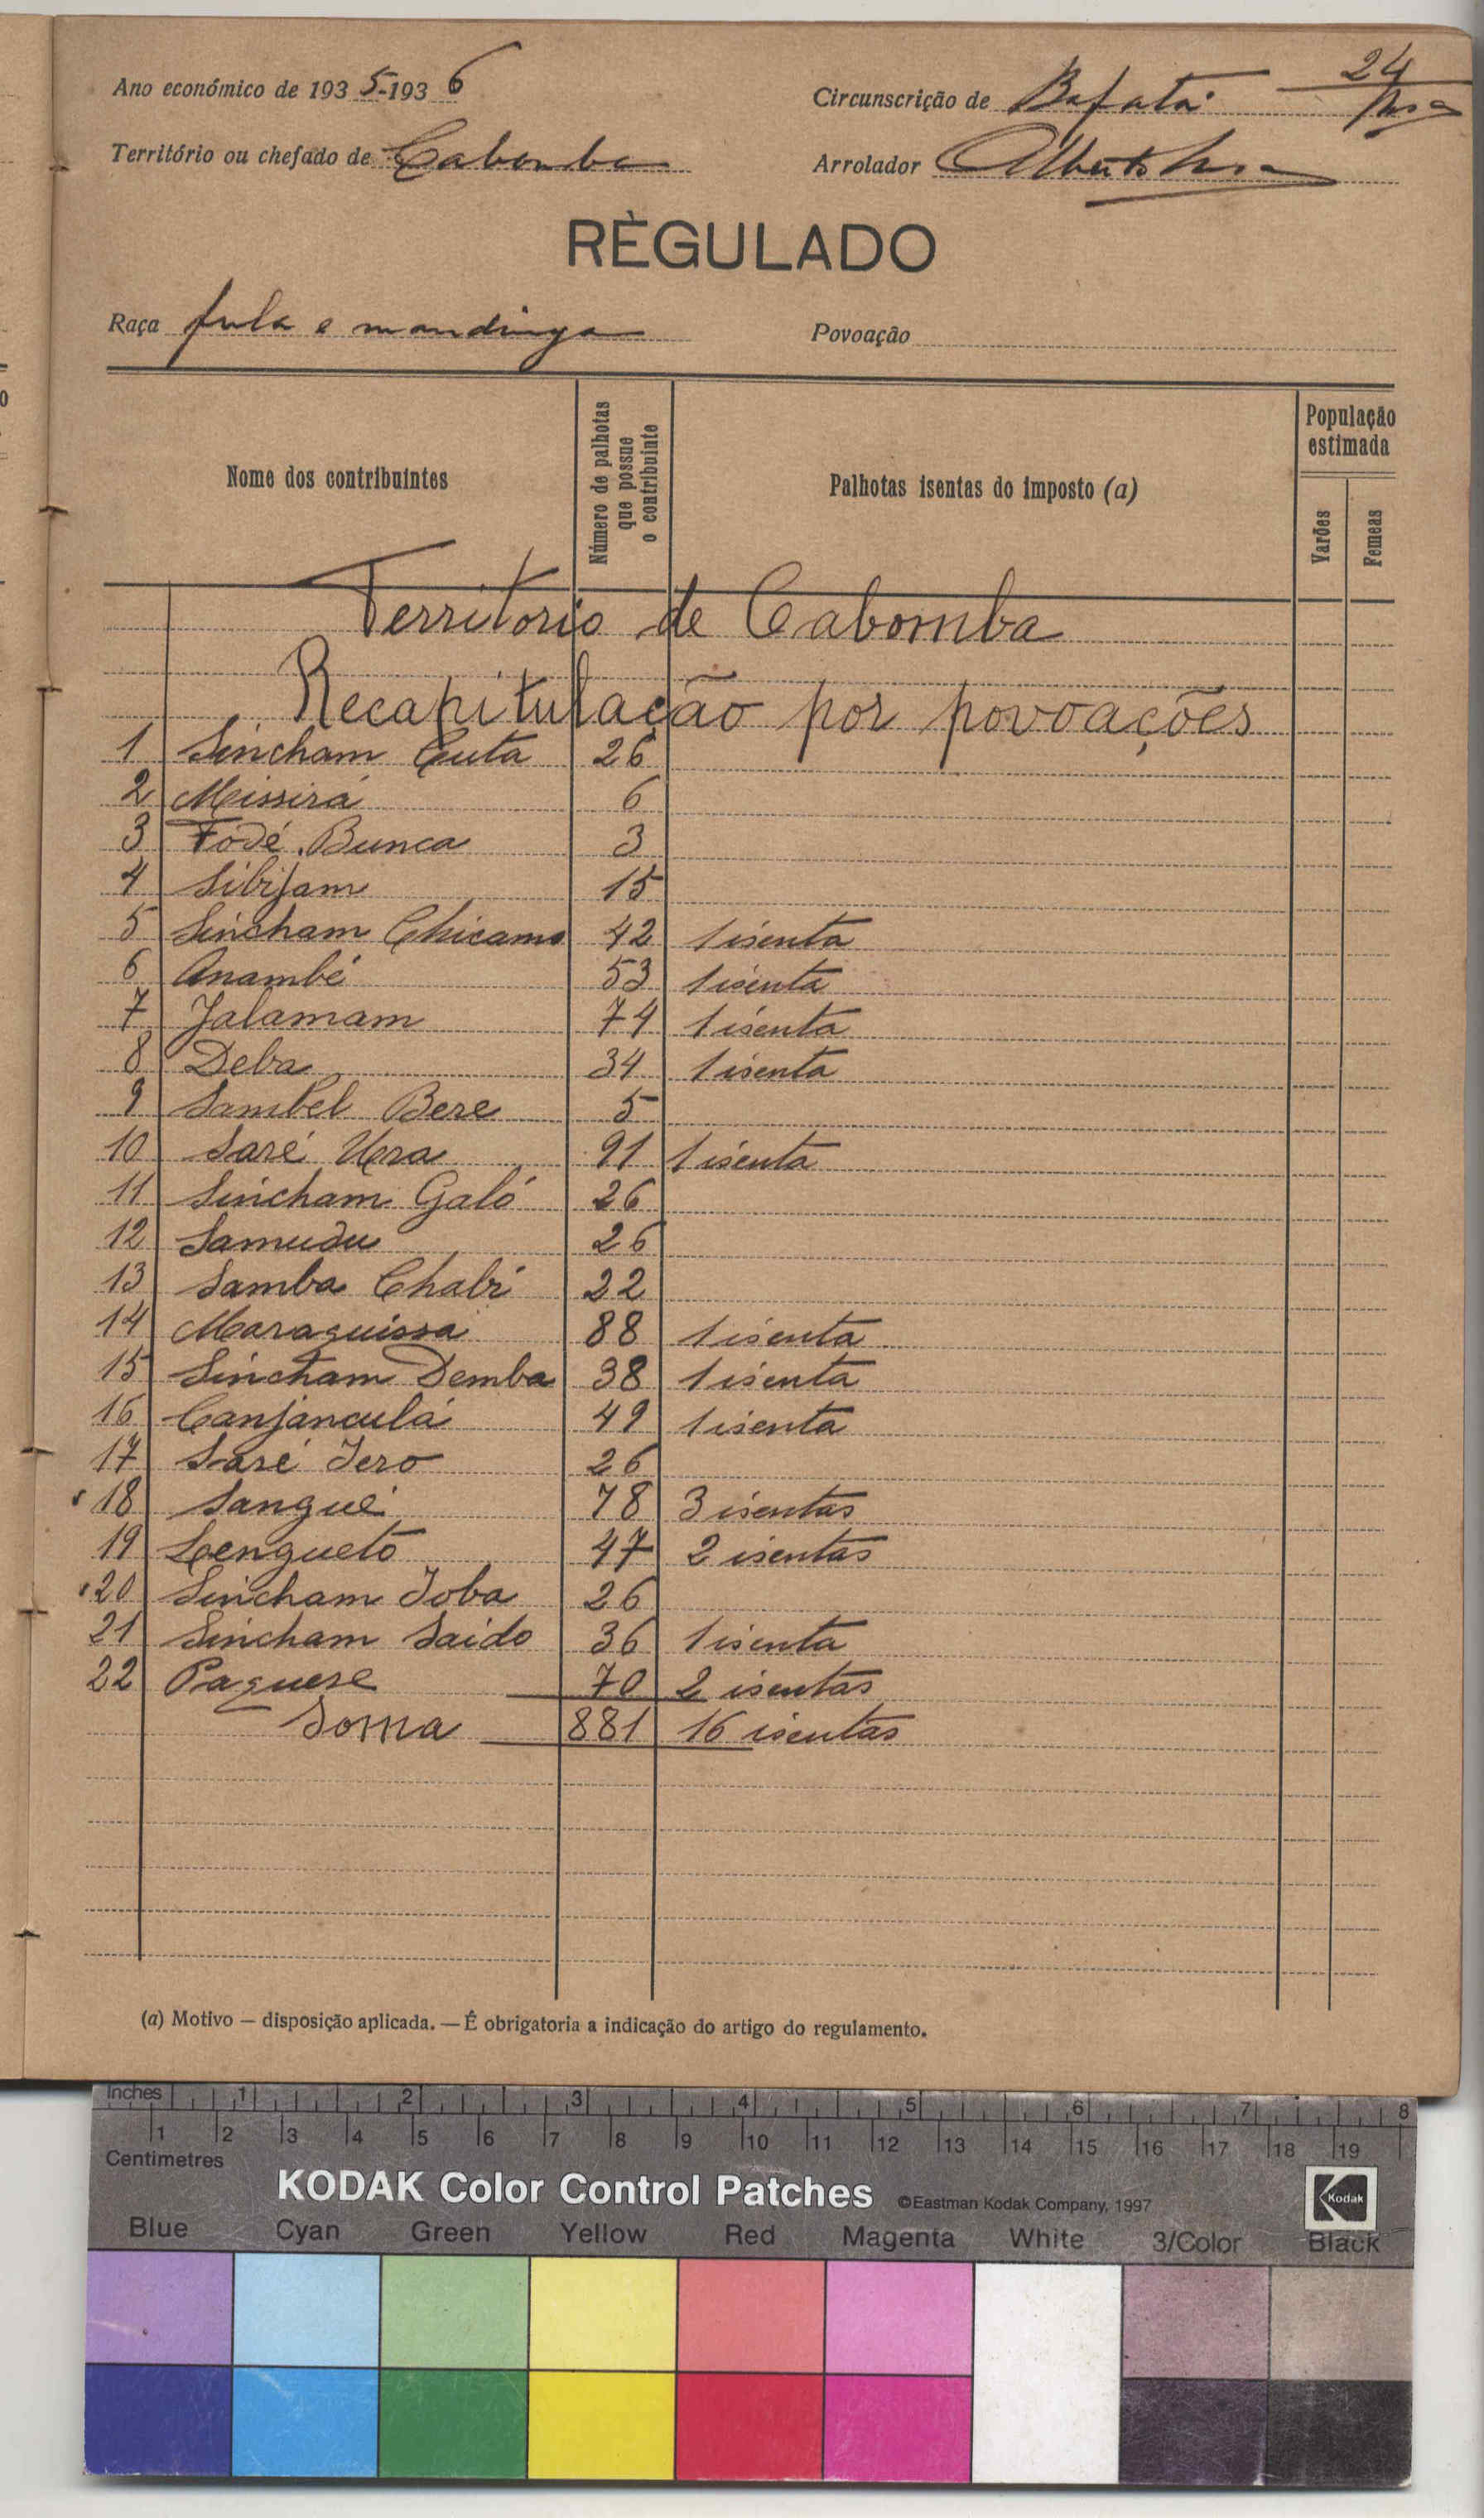 24
Ano económico de 1935-1936 Circunscrição de Bafatá
Território ou chefado de Cabomba Arrolador Alberto
RÈGULADO
Raça fula e mandinga Povoação
Nome dos contribuintes Número de palhotas que possue o contribuinte Palhotas isentas do imposto (a) População estimada Varões Femeas
Territorio de Cabomba
Recapitulação por povoações
1 Sincham Cuta 26
2 Missirá 6
3 Fodé Bunca 3
4 Sibijam 15
5 Sincham Chicamo 42 1 isenta
6 Anambé 53 1 isenta
7 Jalamam 74 1 isenta
8 Deba 34 1 isenta
9 Sambel Bere 5
10 Saré Uera 91 1 isenta
11 Sincham Galó 26
12 Samudu 26
13 Samba Chabi 22
14 Maraquissa 88 1 isenta
15 Sincham Demba 38 1 isenta
16 Canjanculá 49 1 isenta
17 Saré Iero 26
18 Sangué 78 3 isentas
19 Lengueto 47 2 isentas
20 Sincham Ioba 26
21 Sincham Saido 36 1 isenta
22 Paquese 70 2 isentas
Soma 881 16 isentas
(a) Motivo — disposição aplicada. — É obrigatoria a indicação do artigo do regulamento.
Inches 1 2 3 4 5 6 7 8
1 2 3 4 5 6 7 8 9 10 11 12 13 14 15 16 17 18 19
Centimetres
KODAK Color Control Patches ©Eastman Kodak Company, 1997 Kodak
Blue Cyan Green Yellow Red Magenta White 3/Color Black